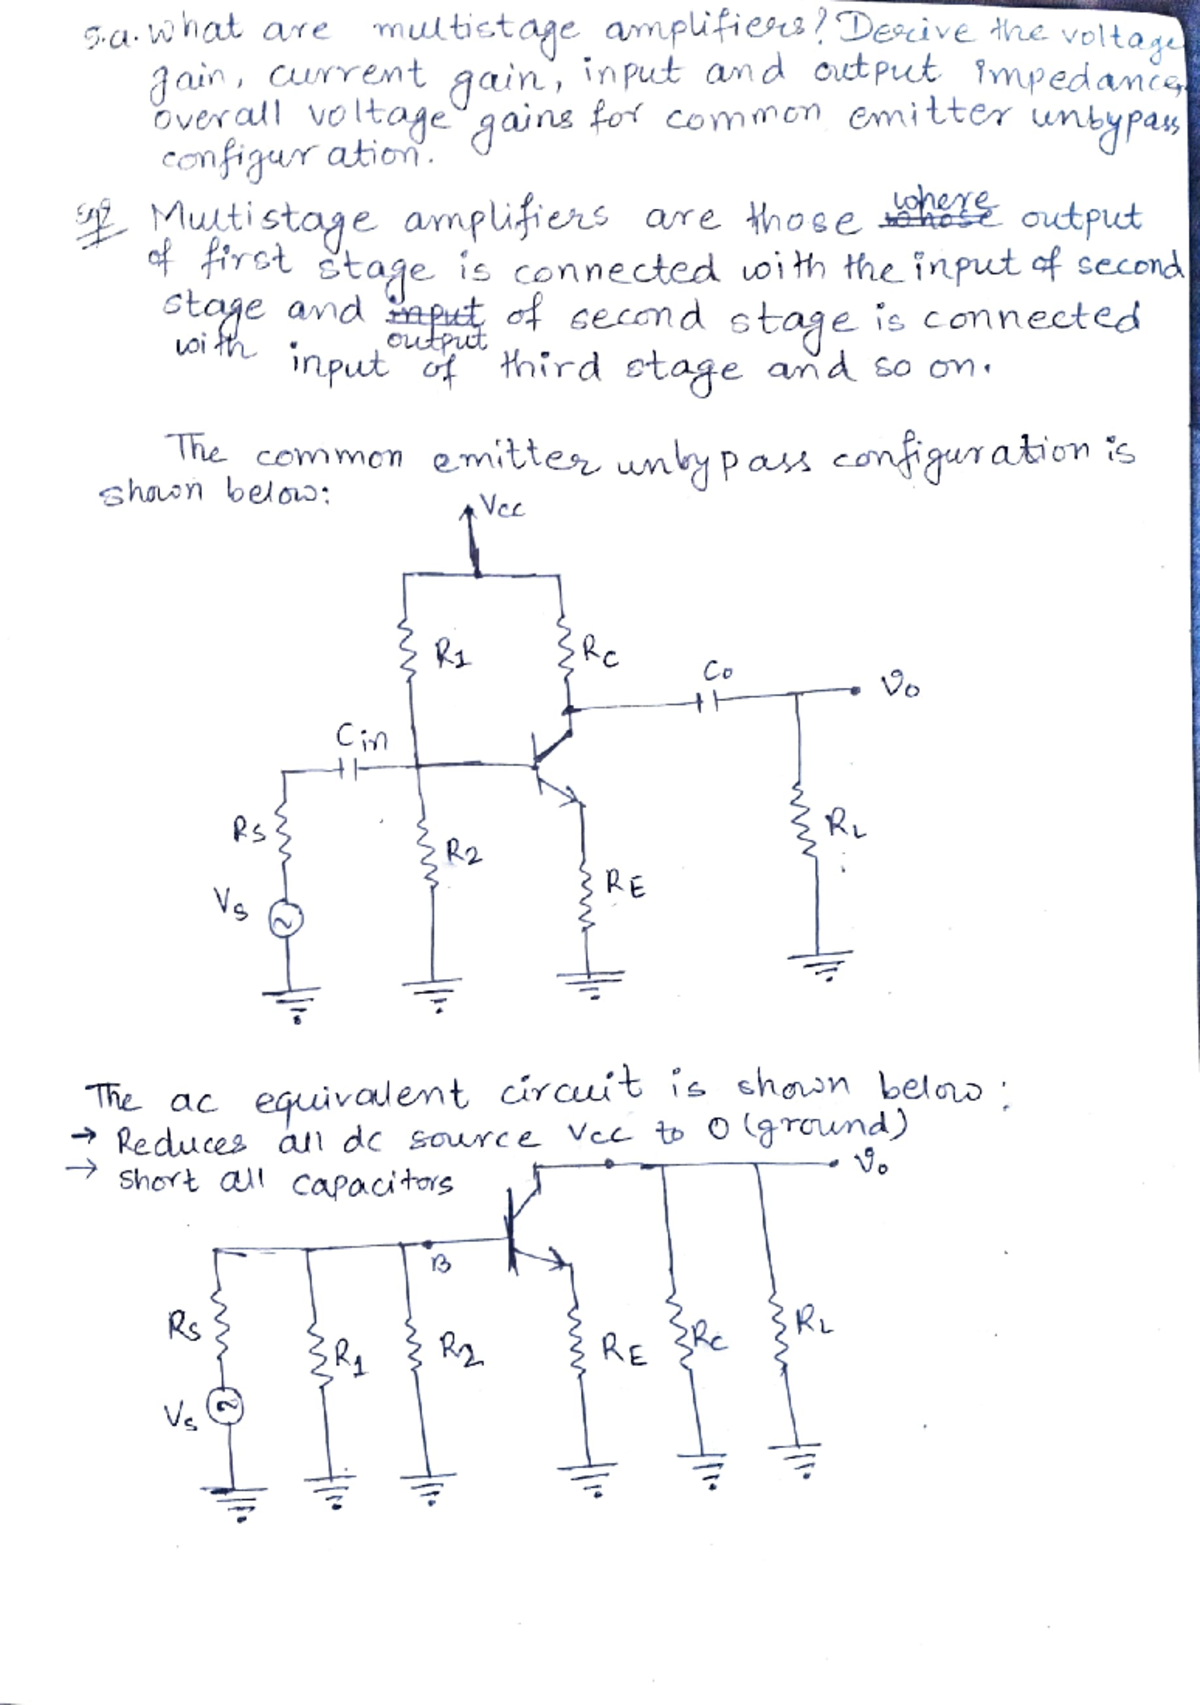 5.a. What are multistage amplifiers? Derive the voltage
gain, current gain, input and output impedance,
overall voltage gains for common emitter unbypass
configuration.
Multistage amplifiers are those where output
of first stage is connected with the input of second
stage and output of second stage is connected
with input of third stage and so on.
The common emitter unbypass configuration is
shown below:
Vcc
R1
Rc
Co
Vo
Cin
Rs
R2
RL
Vs
RE
The ac equivalent circuit is shown below:
→ Reduces all dc source Vcc to 0 (ground)
→ Short all capacitors
Vo
B
Rs
R1
R2
RE
Rc
RL
Vs